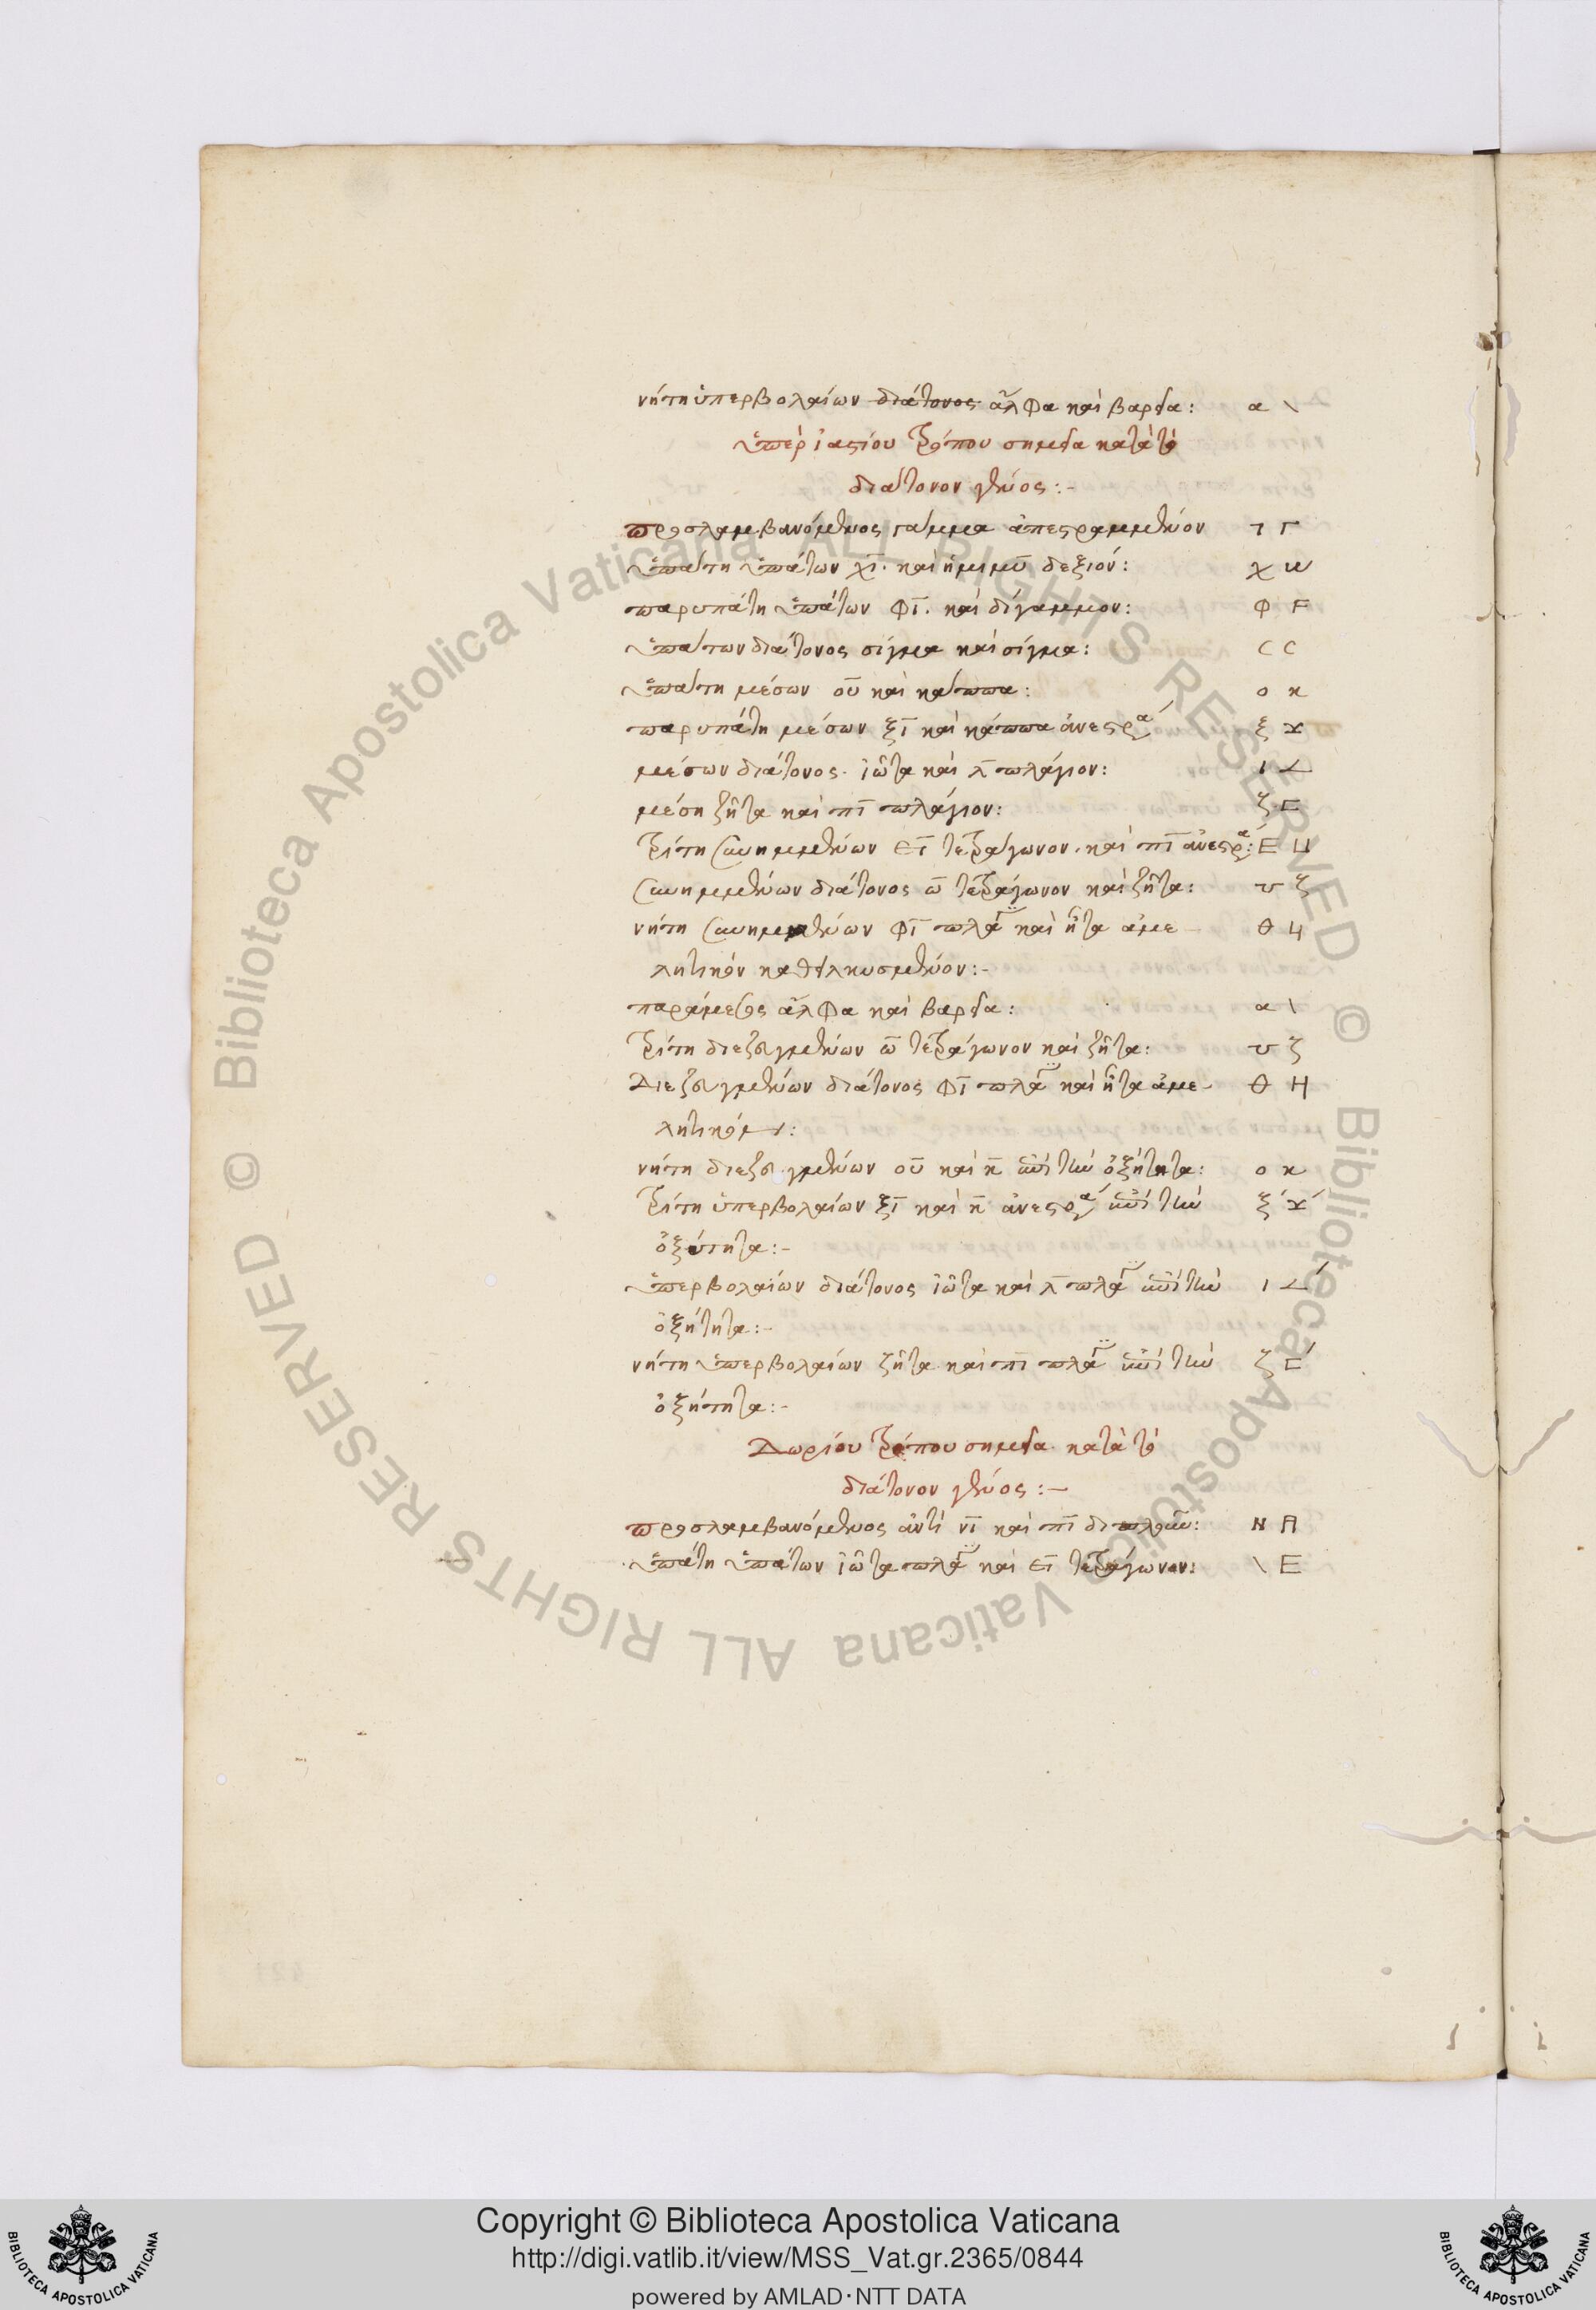 νήτη ὑπερβολαίων διάτονος ἄλφα καὶ βαρεῖα: α \
ὑπὲρ ἰαστίου τρόπου σημεῖα κατὰ τὸ
διάτονον γένος:-
προσλαμβανόμενος γάμμα ἀπεστραμμένον ˥ Γ
ὑπάτη ὑπάτων χῖ. καὶ ἡμιμῦ δεξιόν: χ
παρυπάτη ὑπάτων φῖ. καὶ δίγαμμον: φ F
ὑπάτων διάτονος σίγμα καὶ σίγμα: C C
ὑπάτη μέσων οὖ καὶ κάππα: ο κ
παρυπάτη μέσων ξῖ καὶ κάππα ἀνεστρα ξ
μέσων διάτονος. ἰῶτα καὶ λ πλάγιον: ι
μέση ζῆτα καὶ πῖ πλάγιον: ζ ⊏
τρίτη συνημμένων εῖ τετράγωνον. καὶ πῖ ἀνεστρα: Ε ⊔
συνημμένων διάτονος ω τετράγωνον καὶ ζῆτα: ζ
νήτη συνημμένων φῖ πλα καὶ ἦτα ἀμε θ
λητικὸν καθειλκυσμένον:-
παράμεσος ἄλφα καὶ βαρεῖα: α \
τρίτη διεζευγμένων ω τετράγωνον καὶ ζῆτα: ζ
Διεζευγμένων διάτονος φῖ πλα καὶ ἦτα ἀμε θ Η
λητικόν:
νήτη διεζευγμένων οὖ καὶ κ ἐπὶ τὴν ὀξύτητα: ο κ
τρίτη ὑπερβολαίων ξῖ καὶ κ ἀνεστρα ἐπὶ τὴν ξ
ὀξύτητα:-
ὑπερβολαίων διάτονος ἰῶτα καὶ λ πλα ἐπὶ τὴν ι
ὀξύτητα:-
νήτη ὑπερβολαίων ζῆτα καὶ πῖ πλα ἐπὶ τὴν ζ ⊏́
ὀξύτητα:-
Δωρίου τρόπου σημεῖα κατὰ τὸ
διάτονον γένος:-
προσλαμβανόμενος ἀντὶ νῖ καὶ πῖ διπλοῦν: Ν
ὑπάτη ὑπάτων ἰῶτα πλα καὶ εῖ τετράγωνον: \ Ε
Copyright © Biblioteca Apostolica Vaticana
http://digi.vatlib.it/view/MSS_Vat.gr.2365/0844
powered by AMLAD·NTT DATA
BIBLIOTECA APOSTOLICA VATICANA
BIBLIOTECA APOSTOLICA VATICANA
© Biblioteca Apostolica Vaticana ALL RIGHTS RESERVED
© Biblioteca Apostolica Vaticana ALL RIGHTS RESERVED